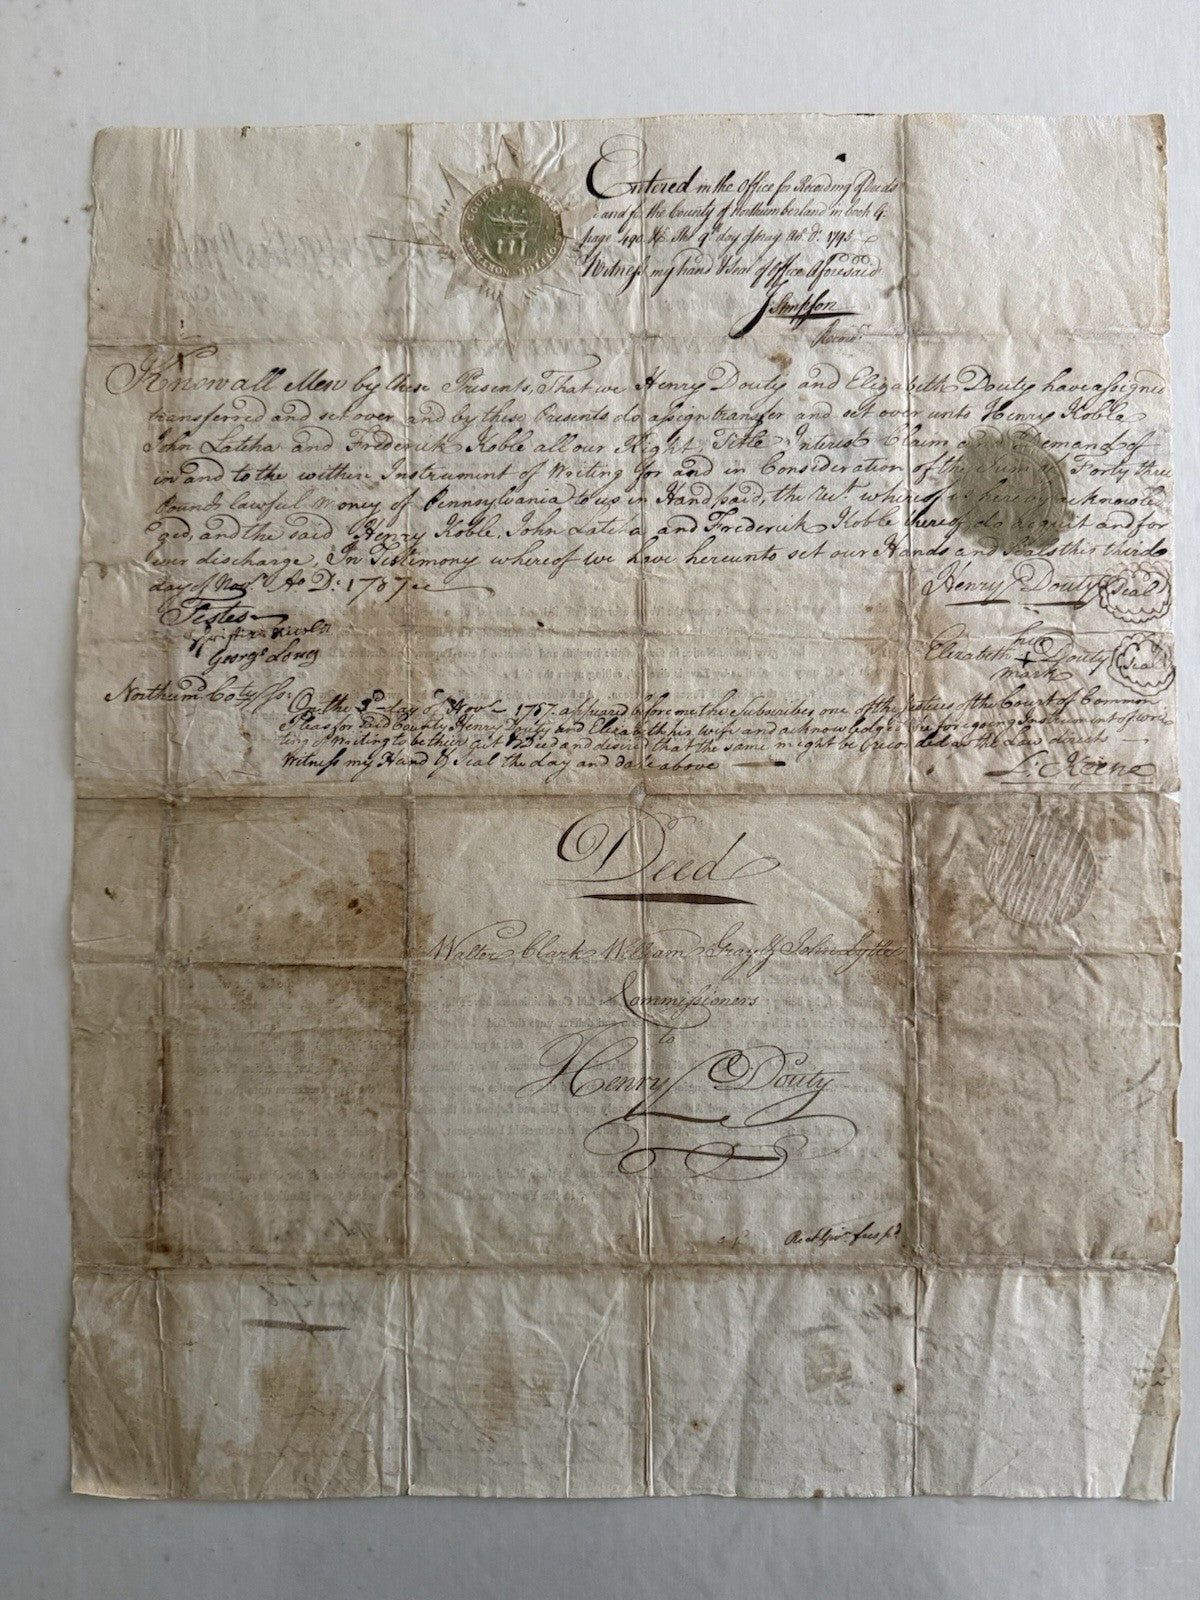 Entered in the Office for Recording of Deeds
in and for the County of Northumberland in book G
page 490 &c. The 9th day of May Ao. D. 1795
Witness my hand & Seal of Office Aforesaid
J Simpson
Recorr.
Know all Men by these Presents, That we Henry Douty and Elizabeth Douty have assigned
transferred and set over and by these Presents do assign transfer and set over unto Henry Koble
John Latcha and Frederick Koble all our Right Title Interest Claim and Demand of
in and to the within Instrument of Writing for and in Consideration of the Sum of Forty three
Pounds lawful Money of Pennsylvania to us in Hand paid, the Rect. whereof is hereby acknowled
ged, and the said Henry Koble, John Latcha and Frederick Koble thereof do acquit and for
ever discharge, In Testimony whereof we have hereunto set our Hands and Seals this third
day of Novr. Ao D: 1787
Testes
George Long
Henry Douty Seal
Elizabeth her + mark Douty Seal
Northumd. Coty. ss: On the 3d day of Novr. 1787 appeared before me the Subscriber one of the Justices of the Court of Common
Pleas for said County Henry Douty and Elizabeth his wife and acknowledged the foregoing Instrument of wri
ting to be their act & Deed and desired that the same might be recorded as the law directs
Witness my Hand & Seal the day and date above
L. Keene
Deed
Walter Clark William Gray & John Lytle
Commissioners
to
Henry Douty